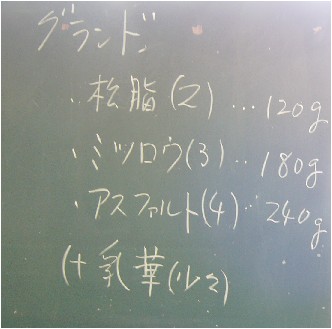 グランド
・松脂(2)…120g
・ミツロウ(3)‥180g
・アスファルト(4)‥240g
(+乳華(少々)